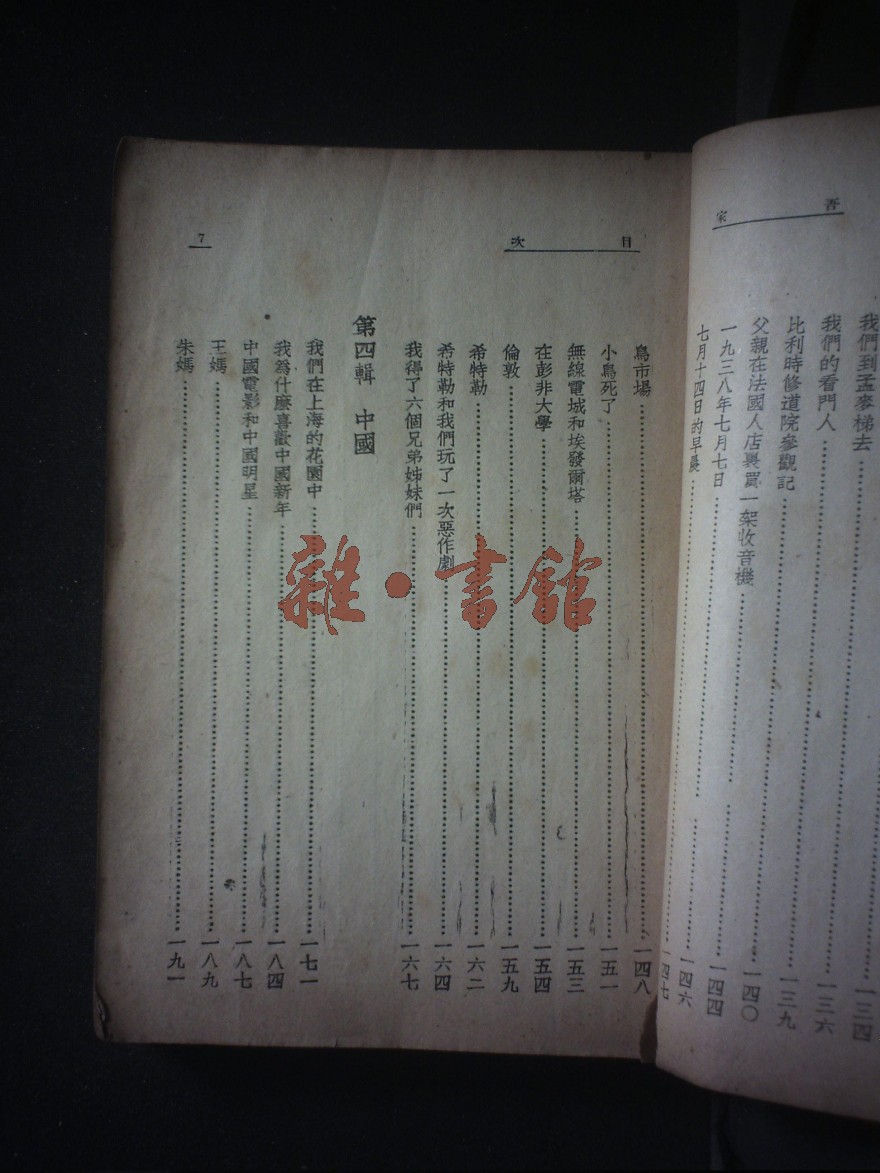 吾家
我們到孟麥梯去……一三四
我們的看門人……一三六
比利時修道院參觀記……一三九
父親在法國人店裏買一架收音機……一四〇
一九三八年七月七日……一四四
七月十四日的早晨……一四六
……一四七
目次
7
鳥市場……一四八
小鳥死了……一五一
無線電城和埃發爾塔……一五三
在彭非大學……一五四
倫敦……一五九
希特勒……一六二
希特勒和我們玩了一次惡作劇……一六四
我得了六個兄弟姊妹們……一六七
第四輯 中國
我們在上海的花園中……一七一
我為什麼喜歡中國新年……一八四
中國電影和中國明星……一八七
王媽……一八九
朱媽……一九一
雜·書館